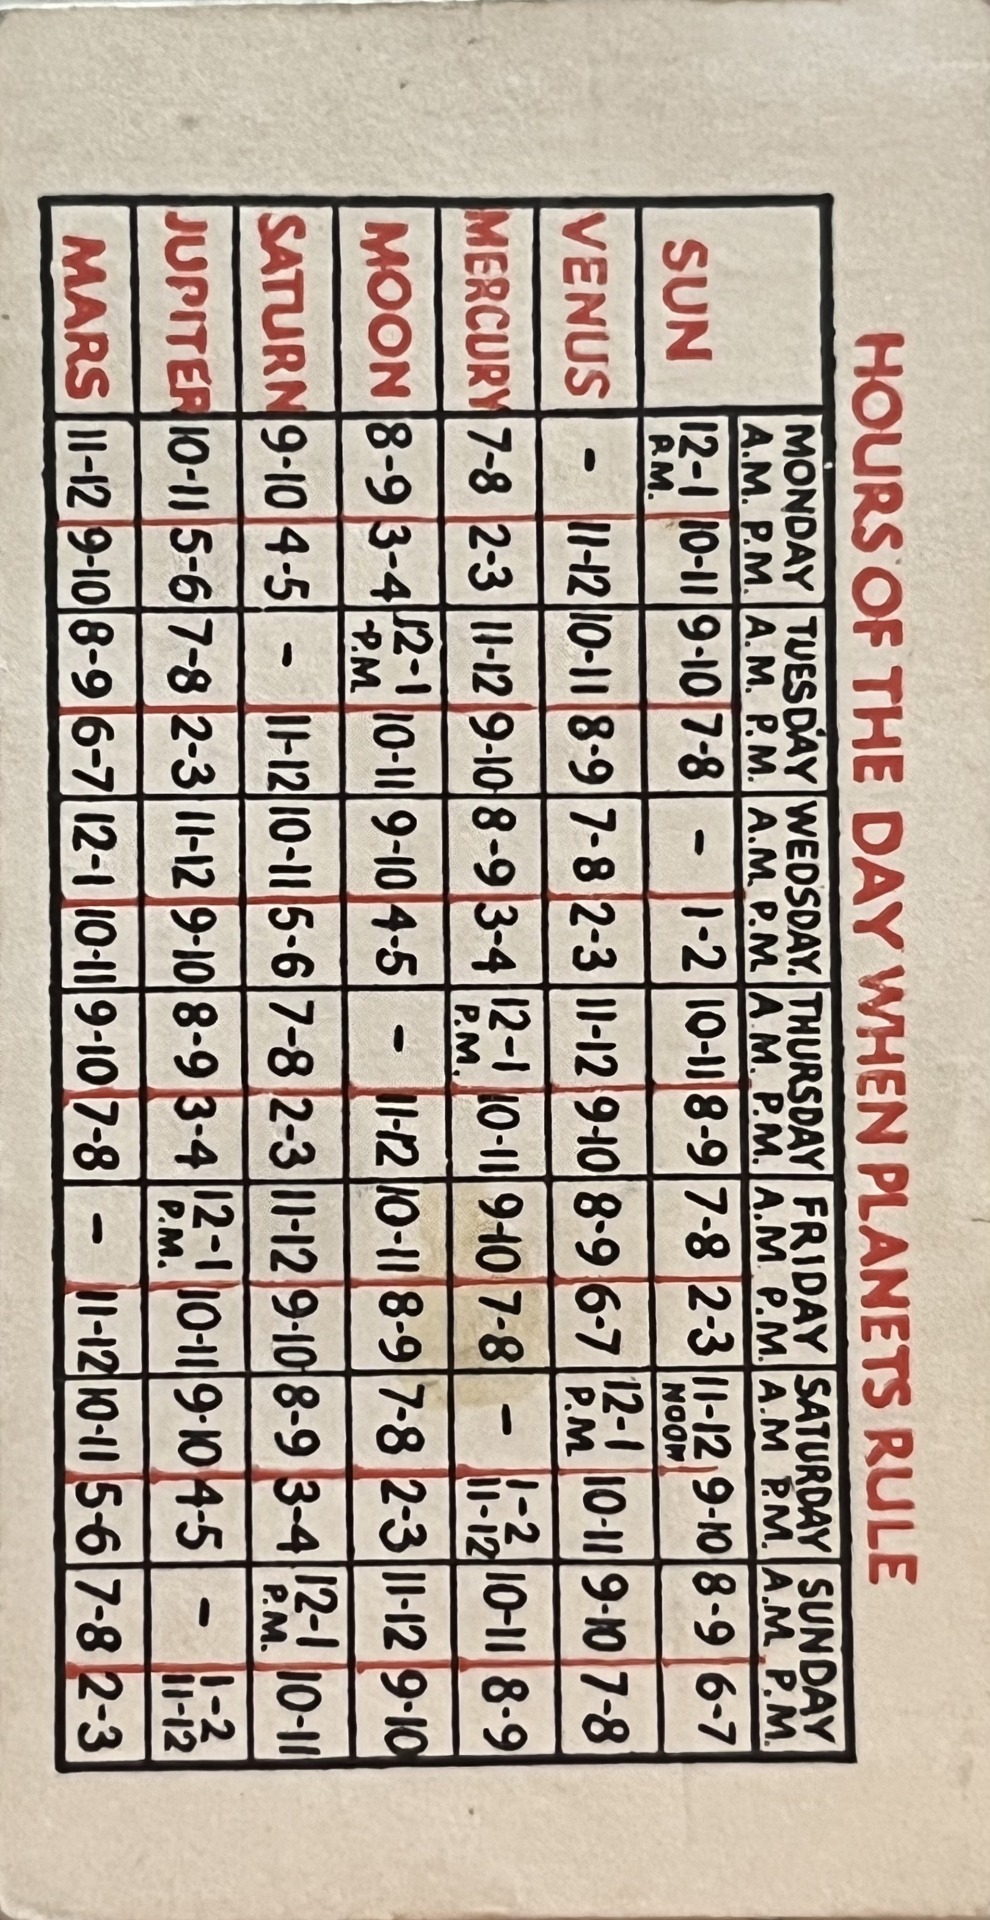 HOURS OF THE DAY WHEN PLANETS RULE
MONDAY TUESDAY WEDSDAY. THURSDAY FRIDAY SATURDAY SUNDAY
A.M. P.M. A.M. P.M. A.M. P.M A.M. P.M. A.M. P.M. A.M P.M. A.M. P.M.
SUN 12-1 P.M. 10-11 9-10 7-8 - 1-2 10-11 8-9 7-8 2-3 11-12 NOON 9-10 8-9 6-7
VENUS - 11-12 10-11 8-9 7-8 2-3 11-12 9-10 8-9 6-7 12-1 P.M. 10-11 9-10 7-8
MERCURY 7-8 2-3 11-12 9-10 8-9 3-4 12-1 P.M. 10-11 9-10 7-8 - 1-2 11-12 10-11 8-9
MOON 8-9 3-4 12-1 P.M 10-11 9-10 4-5 - 11-12 10-11 8-9 7-8 2-3 11-12 9-10
SATURN 9-10 4-5 - 11-12 10-11 5-6 7-8 2-3 11-12 9-10 8-9 3-4 12-1 P.M. 10-11
JUPITER 10-11 5-6 7-8 2-3 11-12 9-10 8-9 3-4 12-1 P.M. 10-11 9-10 4-5 - 1-2 11-12
MARS 11-12 9-10 8-9 6-7 12-1 10-11 9-10 7-8 - 11-12 10-11 5-6 7-8 2-3